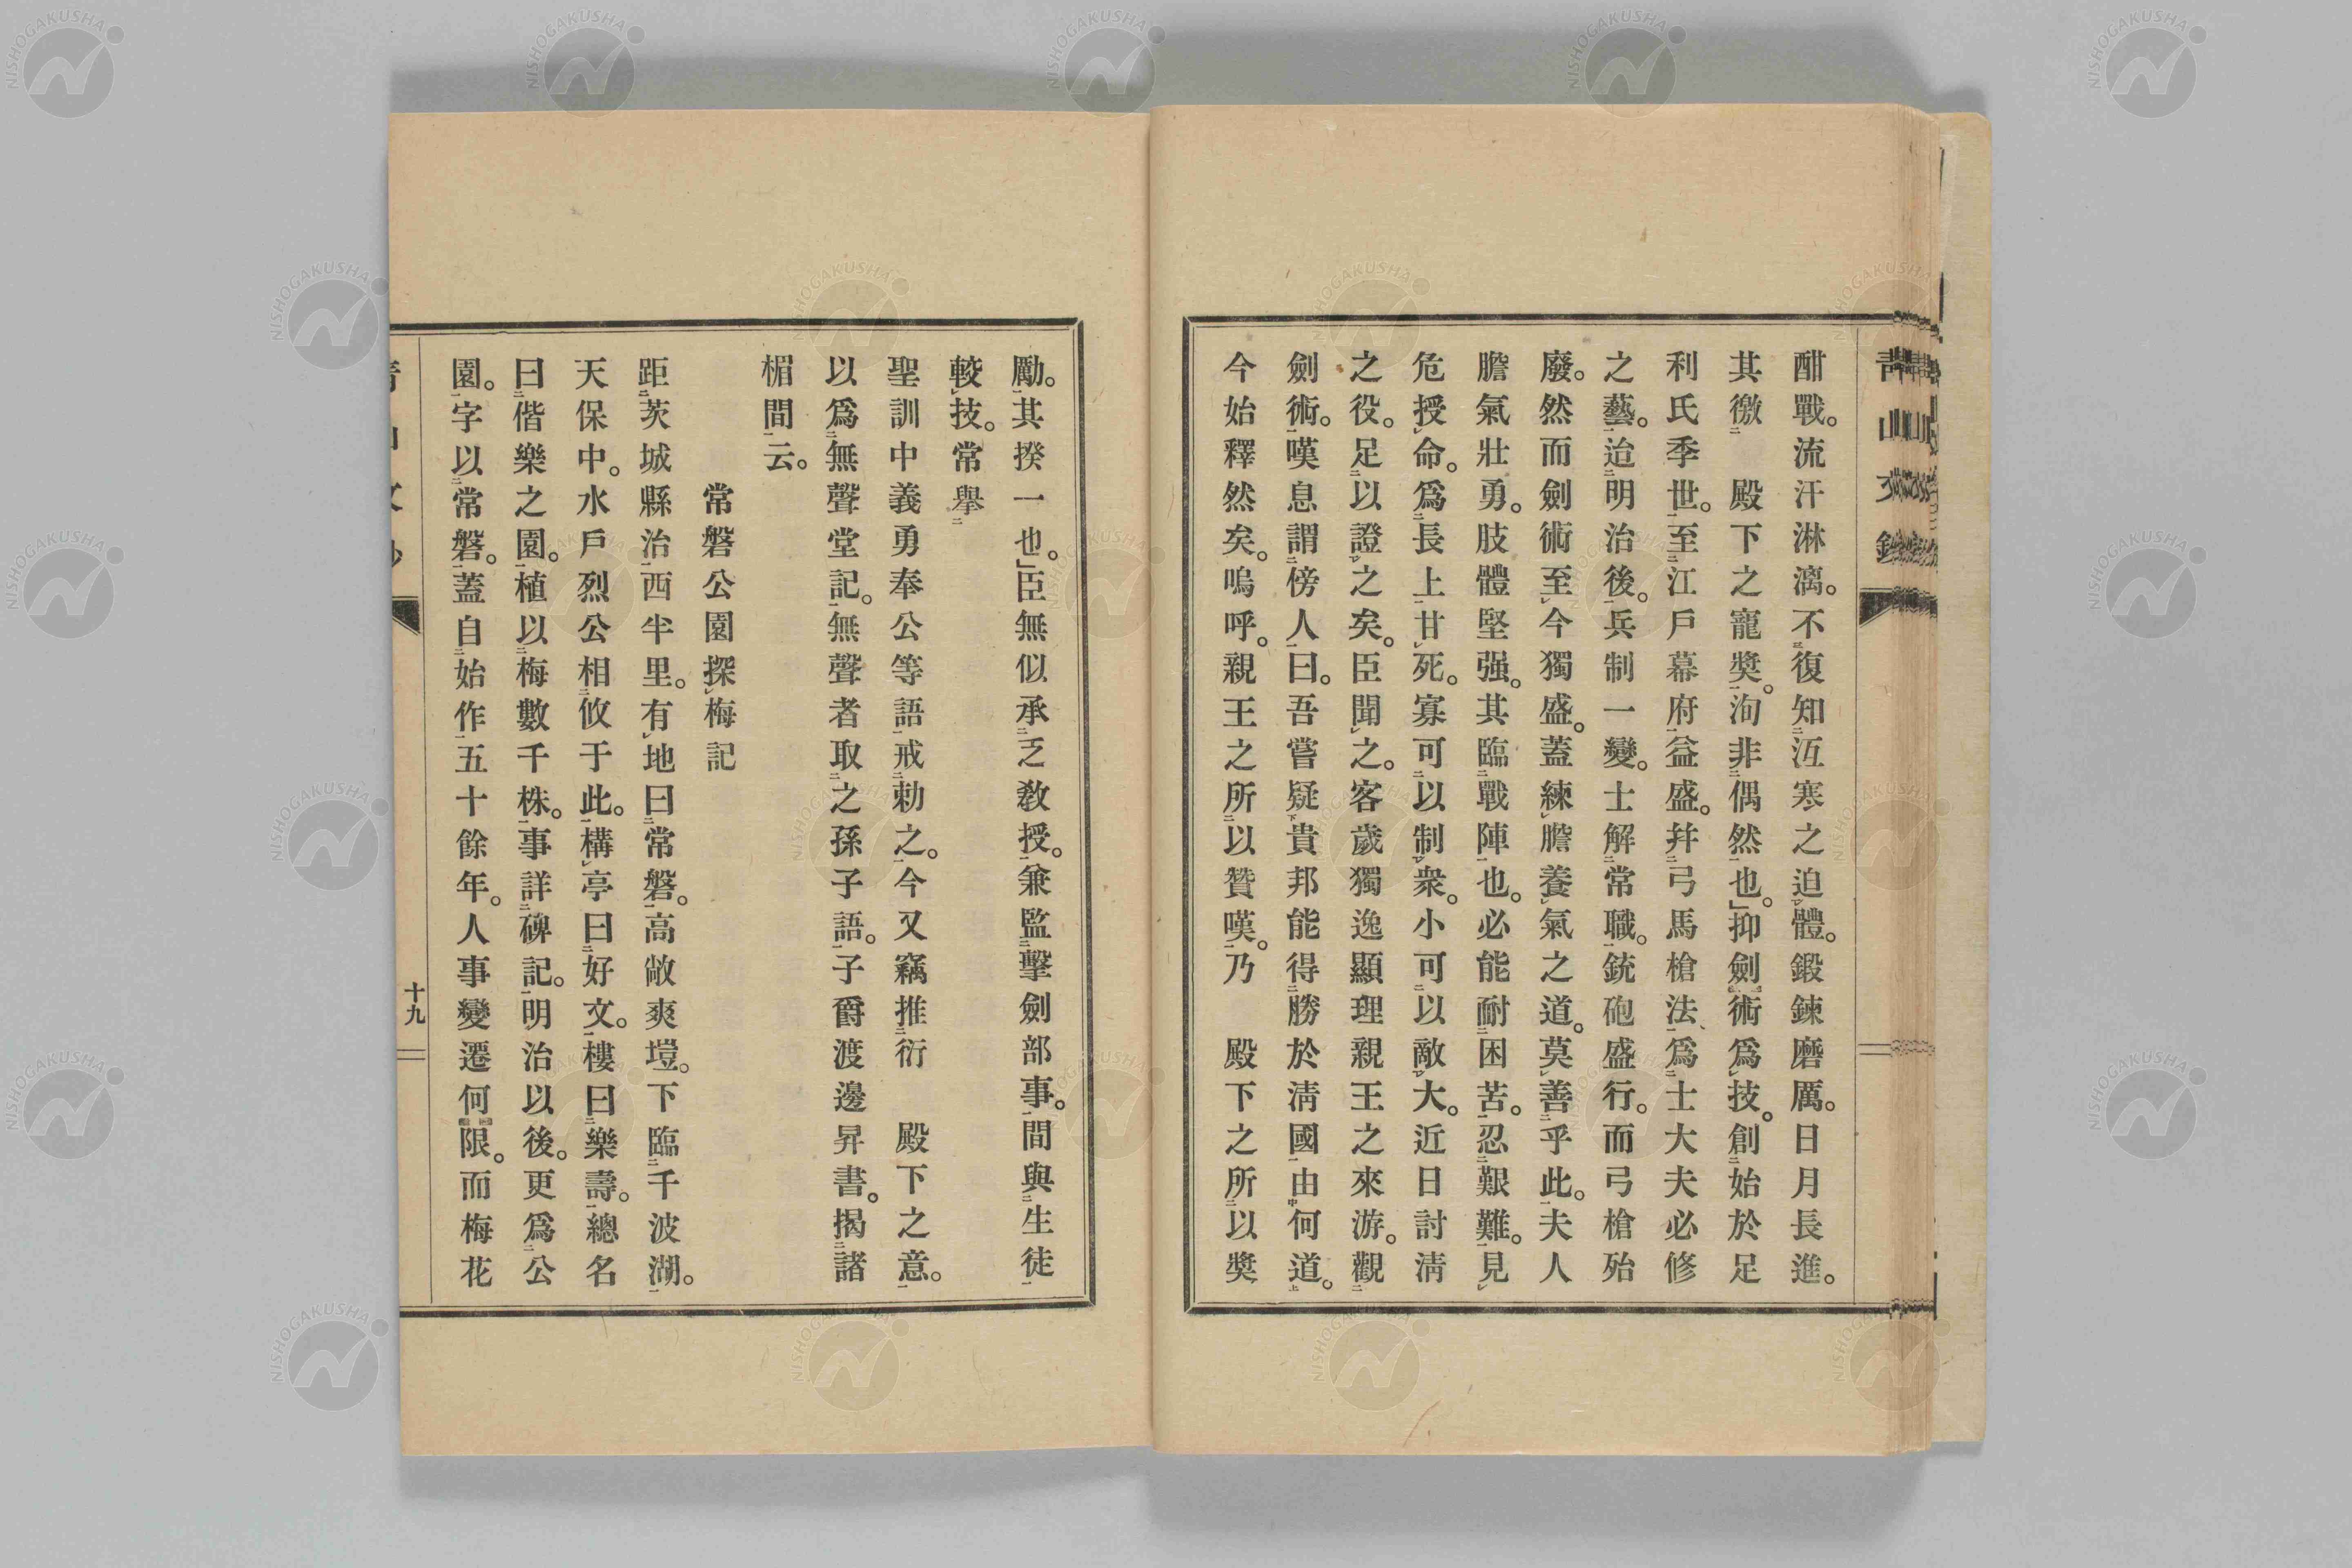 酣戰。流汗淋漓。不復知冱寒之迫體。鍛鍊磨厲。日月長進。
其徼　殿下之寵奬。洵非偶然也。」抑劍術爲技。創始於足
利氏季世。至江戶幕府益盛。幷弓馬槍法、爲士大夫必修
之藝。迨明治後。兵制一變。士解常職。銃砲盛行。而弓槍殆
廢。然而劍術至今獨盛。蓋練膽養氣之道。莫善乎此。夫人
膽氣壯勇。肢體堅强。其臨戰陣也。必能耐困苦。忍艱難。見
危授命。爲長上甘死。寡可以制衆。小可以敵大。近日討淸
之役。足以證之矣。臣聞之。客歲獨逸顯理親王之來游。觀
劍術。嘆息謂傍人曰。吾嘗疑貴邦能得勝於淸國由何道。
今始釋然矣。嗚呼。親王之所以贊嘆。乃　殿下之所以奬
勵。其揆一也。」臣無似承乏敎授。兼監擊劍部事。間與生徒
較技。常擧
聖訓中義勇奉公等語戒勅之。今又竊推衍　殿下之意。
以爲無聲堂記。無聲者取之孫子語。子爵渡邊昇書。揭諸
楣間云。
常磐公園探梅記
距茨城縣治西半里。有地曰常磐。高敞爽塏。下臨千波湖。
天保中。水戶烈公相攸于此。構亭曰好文。樓曰樂壽。總名
曰偕樂之園。植以梅數千株。事詳碑記。明治以後。更爲公
園。字以常磐。蓋自始作五十餘年。人事變遷何限。而梅花
十九
NISHOGAKUSHA